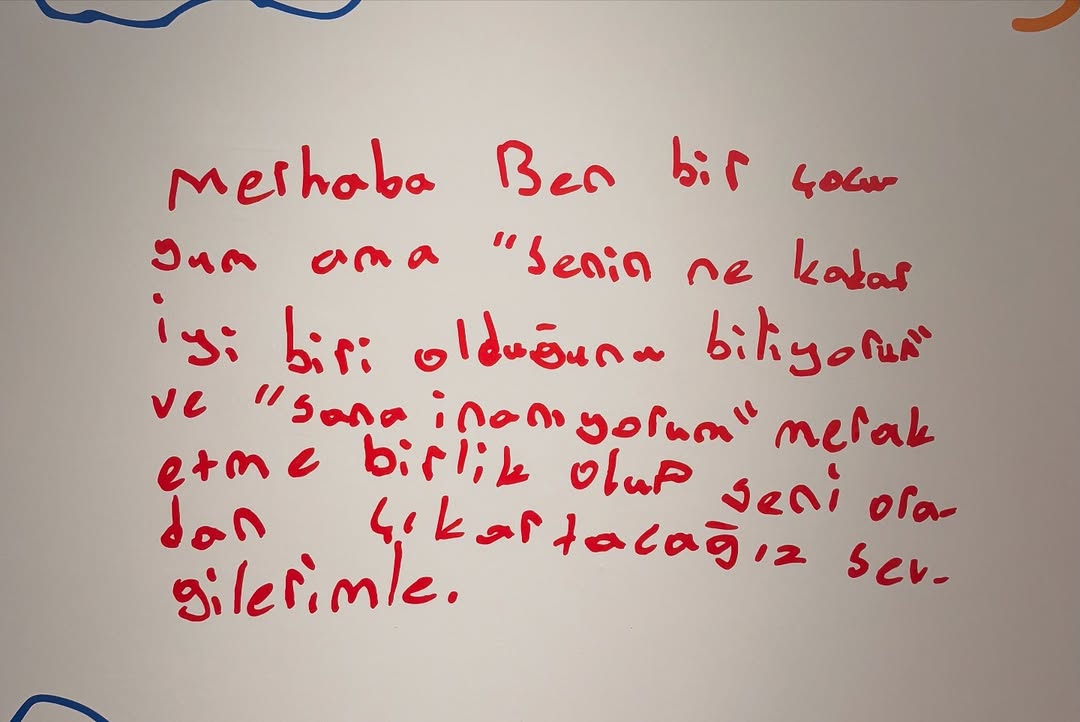 Merhaba Ben bir çocu
ğum ama "Senin ne kadar
iyi biri olduğunu biliyorum"
ve "sana inanıyorum" merak
etme birlik olup seni ora-
dan çıkartacağız sev-
gilerimle.